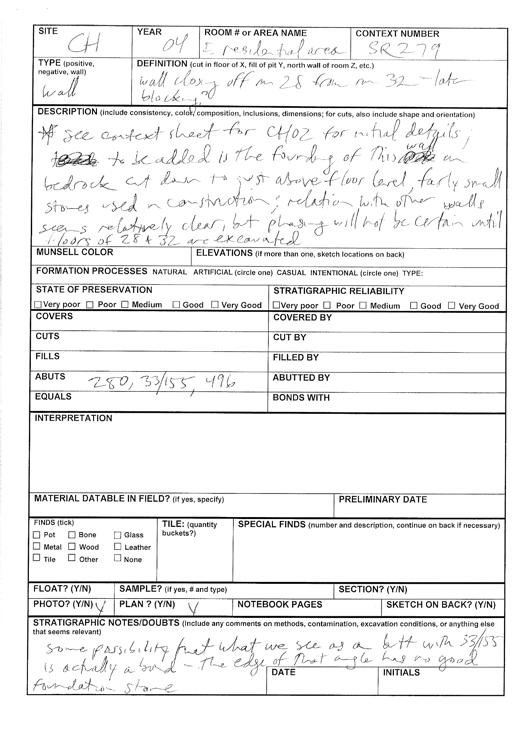 SITE CH YEAR 04 ROOM # or AREA NAME E residential area CONTEXT NUMBER SR279
TYPE (positive, negative, wall) wall
DEFINITION (cut in floor of X, fill of pit Y, north wall of room Z, etc.)
wall closing off rm 28 from rm 32 – late
blocking
DESCRIPTION (include consistency, color/composition, inclusions, dimensions; for cuts, also include shape and orientation)
* see context sheet for CH02 for initial details;
to be added is the founding of this wall on
bedrock cut down to just above floor level, fairly small
stones used in construction; relation with other walls
seems relatively clear, but phasing will not be certain until
floors of 28 + 32 are excavated
MUNSELL COLOR ELEVATIONS (if more than one, sketch locations on back)
FORMATION PROCESSES NATURAL ARTIFICIAL (circle one) CASUAL INTENTIONAL (circle one) TYPE:
STATE OF PRESERVATION STRATIGRAPHIC RELIABILITY
Very poor Poor Medium Good Very Good Very poor Poor Medium Good Very Good
COVERS COVERED BY
CUTS CUT BY
FILLS FILLED BY
ABUTS 280, 33/155, 496 ABUTTED BY
EQUALS BONDS WITH
INTERPRETATION
MATERIAL DATABLE IN FIELD? (if yes, specify) PRELIMINARY DATE
FINDS (tick) TILE: (quantity buckets?) SPECIAL FINDS (number and description, continue on back if necessary)
Pot Bone Glass
Metal Wood Leather
Tile Other None
FLOAT? (Y/N) SAMPLE? (if yes, # and type) SECTION? (Y/N)
PHOTO? (Y/N) Y PLAN ? (Y/N) Y NOTEBOOK PAGES SKETCH ON BACK? (Y/N)
STRATIGRAPHIC NOTES/DOUBTS (Include any comments on methods, contamination, excavation conditions, or anything else
that seems relevant)
some possibility that what we see as a butt with 33/155
is actually a bond – the edge of that angle has no good
foundation stone
DATE INITIALS